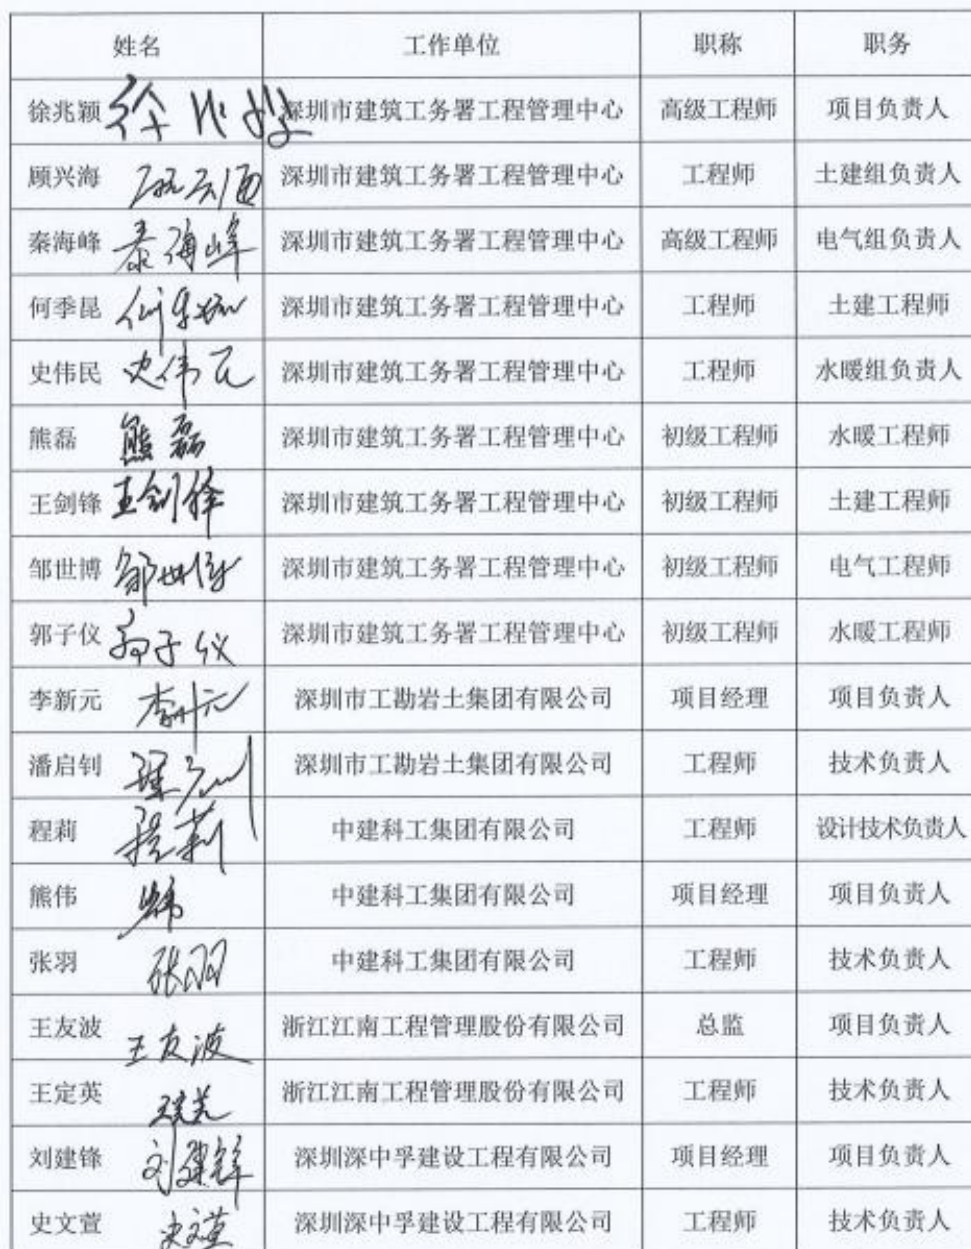 姓名 工作单位 职称 职务
徐兆颖 徐兆颖 深圳市建筑工务署工程管理中心 高级工程师 项目负责人
顾兴海 深圳市建筑工务署工程管理中心 工程师 土建组负责人
秦海峰 秦海峰 深圳市建筑工务署工程管理中心 高级工程师 电气组负责人
何季昆 深圳市建筑工务署工程管理中心 工程师 土建工程师
史伟民 史伟民 深圳市建筑工务署工程管理中心 工程师 水暖组负责人
熊磊 熊磊 深圳市建筑工务署工程管理中心 初级工程师 水暖工程师
王剑锋 王剑锋 深圳市建筑工务署工程管理中心 初级工程师 土建工程师
邹世博 邹世博 深圳市建筑工务署工程管理中心 初级工程师 电气工程师
郭子仪 郭子仪 深圳市建筑工务署工程管理中心 初级工程师 水暖工程师
李新元 李新元 深圳市工勘岩土集团有限公司 项目经理 项目负责人
潘启钊 深圳市工勘岩土集团有限公司 工程师 技术负责人
程莉 程莉 中建科工集团有限公司 工程师 设计技术负责人
熊伟 熊伟 中建科工集团有限公司 项目经理 项目负责人
张羽 张羽 中建科工集团有限公司 工程师 技术负责人
王友波 王友波 浙江江南工程管理股份有限公司 总监 项目负责人
王定英 浙江江南工程管理股份有限公司 工程师 技术负责人
刘建锋 刘建锋 深圳深中孚建设工程有限公司 项目经理 项目负责人
史文萱 史文萱 深圳深中孚建设工程有限公司 工程师 技术负责人